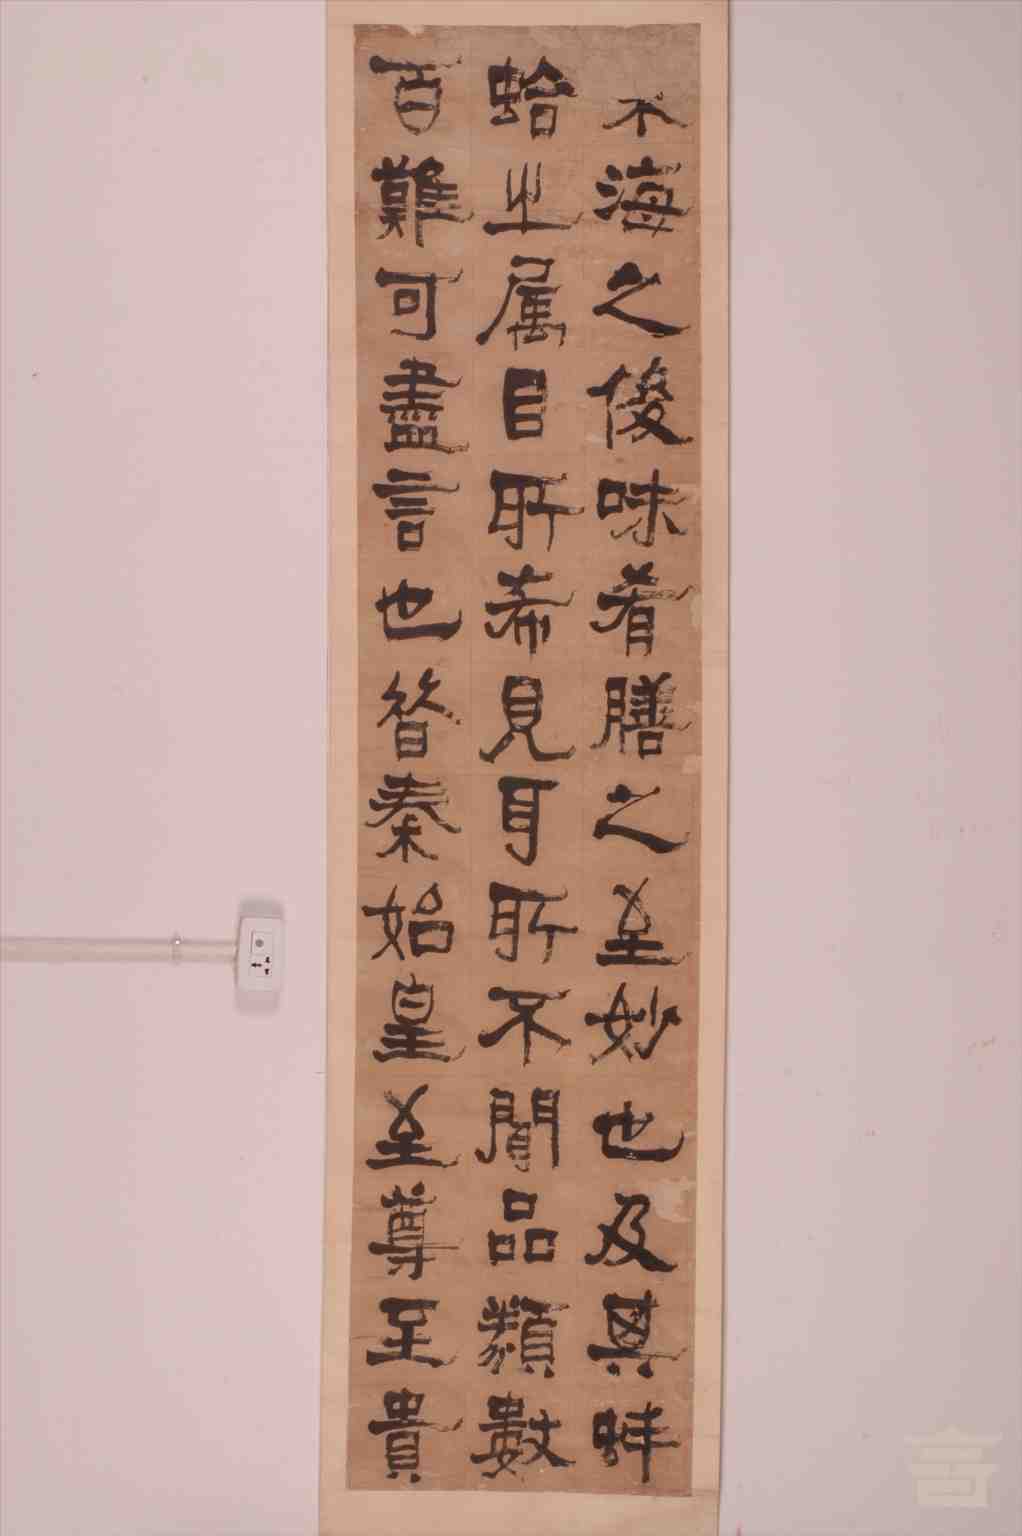 不海之俊味肴膳之至妙也及其蚌
蛤之属目所希見耳所不聞品類數
百難可盡言也昔秦始皇至尊至貴